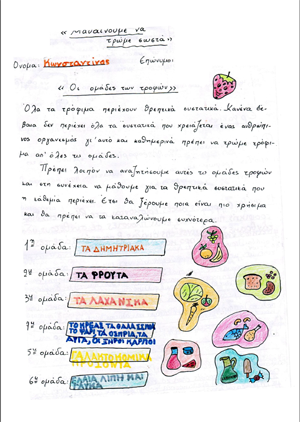 «Μαθαίνουμε να
τρώμε σωστά»
Όνομα: Κωνσταντίνος Επώνυμο:
«Οι ομάδες των τροφών»
Όλα τα τρόφιμα περιέχουν θρεπτικά συστατικά. Κανένα βέ-
βαια δεν περιέχει όλα τα συστατικά που χρειάζεται ένας ανθρώπι-
νος οργανισμός γι' αυτό και καθημερινά πρέπει να τρώμε τρόφι-
μα απ' όλες τις ομάδες.
Πρέπει λοιπόν να αναζητήσουμε αυτές τις ομάδες τροφών
και στη συνέχεια να μάθουμε για τα θρεπτικά συστατικά που
η καθεμία περιέχει. Έτσι θα ξέρουμε ποια είναι πιο χρήσιμα
και θα πρέπει να τα καταναλώνουμε συχνότερα.
1η ομάδα: ΤΑ ΔΗΜΗΤΡΙΑΚΑ
2η ομάδα: ΤΑ ΦΡΟΥΤΑ
3η ομάδα: ΤΑ ΛΑΧΑΝΙΚΑ
4η ομάδα: ΤΟ ΚΡΕΑΣ, ΤΑ ΘΑΛΑΣΣΙΝΑ
ΤΟ ΨΑΡΙ, ΤΑ ΟΣΠΡΙΑ, ΤΑ
ΑΥΓΑ, ΟΙ ΞΗΡΟΙ ΚΑΡΠΟΙ
5η ομάδα: ΓΑΛΑΚΤΟΚΟΜΙΚΑ
ΠΡΟΪΟΝΤΑ
6η ομάδα: ΕΛΑΙΑ ΛΙΠΗ ΚΑΙ
ΓΛΥΚΑ